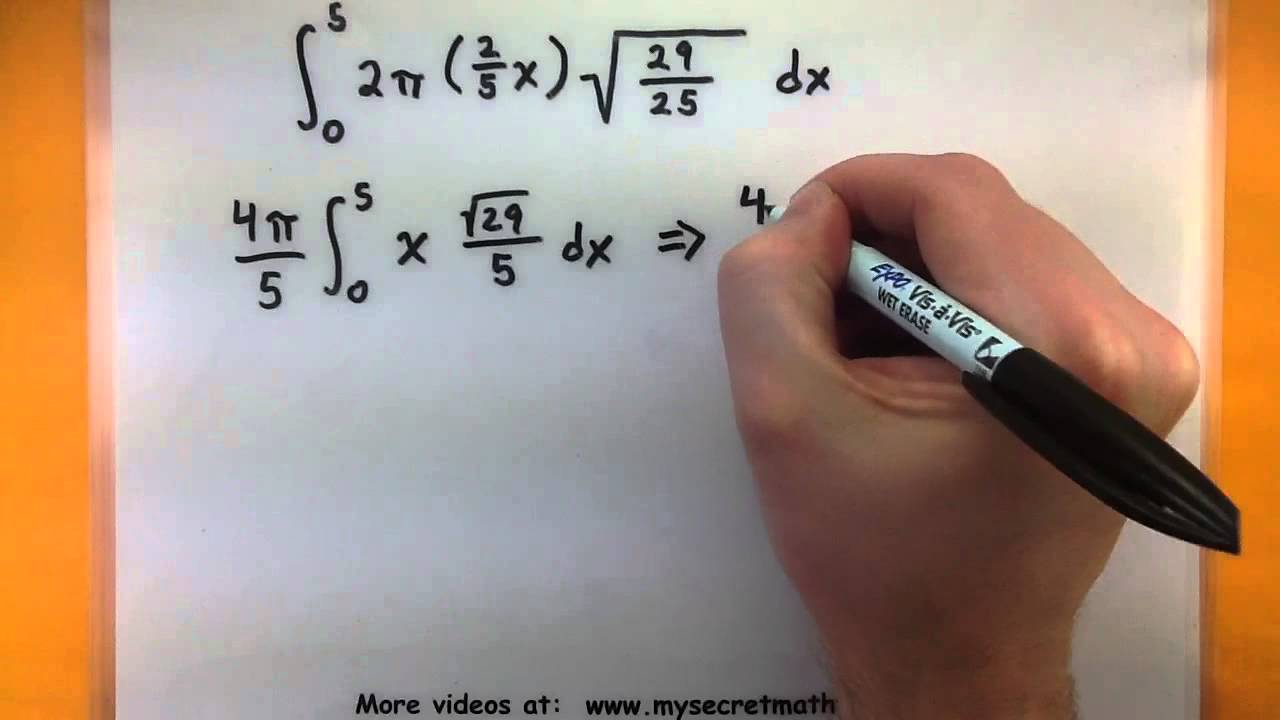 ∫₀⁵ 2π (2/5 x) √(29/25) dx
4π/5 ∫₀⁵ x √29/5 dx ⇒ 4
EXPO Vis-à-Vis®
WET ERASE
More videos at: www.mysecretmath